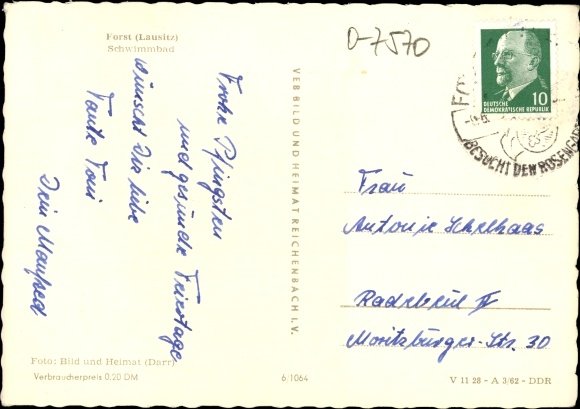 Forst (Lausitz)
Schwimmbad
0-7570
Frohe Pfingsten
und gesunde Feiertage
wünscht Die liebe
Tante Toni
Dein Manfred
VEB BILD UND HEIMAT REICHENBACH I. V.
DEUTSCHE
DEMOKRATISCHE REPUBLIK
10
BESUCHT DEN ROSENGA
Frau
Antonie Schelhaas
Radebeul II
Moritzburger-Str. 30
Foto: Bild und Heimat (Darr)
Verbraucherpreis 0.20 DM
6/1064
V 11 28 - A 3/62 - DDR